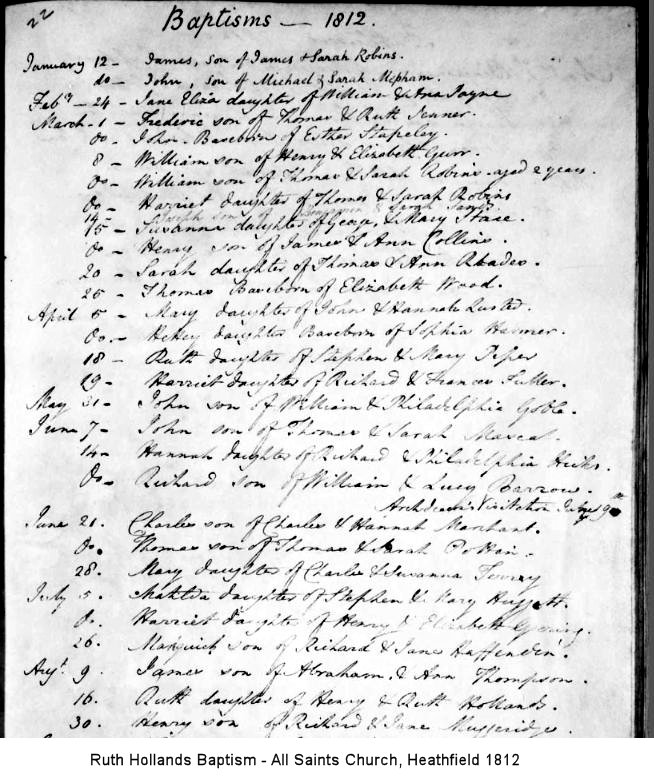 22
Baptisms — 1812.
January 12 – James, son of James & Sarah Robins.
do – John, son of Michael & Sarah Mepham.
Feby – 24 – Jane Eliza daughter of William & Ann Jayne
March – 1 – Frederic son of Thomas & Ruth Jenner.
Do – John – Baseborn of Esther Stapeley.
8 – William son of Henry & Elizabeth Gurr.
Do – William son of Thomas & Sarah Robins – aged 2 years.
Do – Harriet daughter of Thomas & Sarah Robins
14 – Joseph son of & Sarah
15 – Susanna daughter of George & Mary
Do – Henry son of James & Ann Collins.
20 – Sarah daughter of Thomas & Ann Rhades.
25 – Thomas Baseborn of Elizabeth Wood.
April 5 – Mary daughter of John & Hannah Lusted.
Do. – daughter Baseborn of Sophia Harmer.
18 – Ruth daughter of Stephen & Mary Piper
19 – Harriet daughter of Richard & Frances Fuller.
May 31 – John son of William & Philadelphia Goble.
June 7 – John son of Thomas & Sarah
14 – Hannah daughter of Richard & Philadelphia Hicks.
Do – Richard son of William & Lucy Barrow.
Visitation July 9th
June 21. Charles son of Charles & Hannah Marchant.
Do. Thomas son of Thomas & Sarah
28. Mary daughter of Charles & Susanna
July 5. Matilda daughter of Stephen & Mary
Do. Harriet daughter of Henry & Elizabeth
26. son of Richard & Jane Haffenden.
Augt. 9. James son of Abraham & Ann Thompson.
16. Ruth daughter of Henry & Ruth Hollands.
30. Henry son of Richard & Jane
Ruth Hollands Baptism - All Saints Church, Heathfield 1812